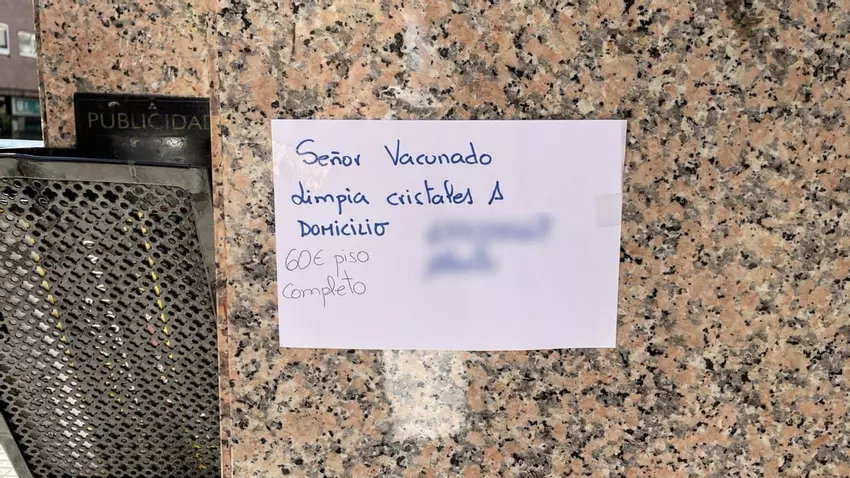 PUBLICIDAD
Señor Vacunado
Limpia cristales A
DOMICILIO
60€ piso
completo